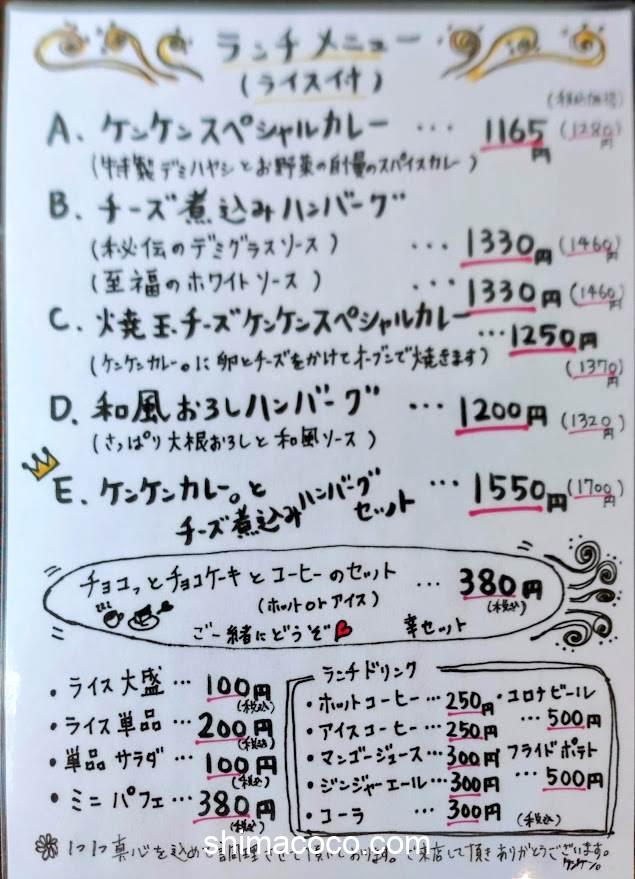 ランチメニュー
(ライス付)
(税込価格)
A. ケンケンスペシャルカレー ... 1165円 (1280円)
(特製デミハヤシとお野菜の自慢のスパイスカレー)
B. チーズ煮込みハンバーグ
(秘伝のデミグラスソース) ... 1330円 (1460円)
(至福のホワイトソース) ... 1330円 (1460円)
C. 焼玉チーズケンケンスペシャルカレー ... 1250円
(ケンケンカレー。に卵とチーズをかけてオーブンで焼きます) (1370円)
D. 和風おろしハンバーグ ... 1200円 (1320円)
(さっぱり大根おろしと和風ソース)
E. ケンケンカレー。と
チーズ煮込みハンバーグセット ... 1550円 (1700円)
チョコっとチョコケーキとコーヒーのセット ... 380円
(ホット or アイス) (税込)
ご一緒にどうぞ 幸セット
・ライス大盛 ... 100円 (税込)
・ライス単品 ... 200円 (税込)
・単品サラダ ... 100円 (税込)
・ミニパフェ ... 380円 (税込)
ランチドリンク
・ホットコーヒー ... 250円
・アイスコーヒー ... 250円
・マンゴージュース ... 300円
・ジンジャーエール ... 300円
・コーラ ... 300円
・コロナビール
... 500円
・フライドポテト
... 500円
(税込)
1つ1つ真心を込めて調理させて頂いております。ご来店して頂きありがとうございます。
ケンケン。
shimacoco.com